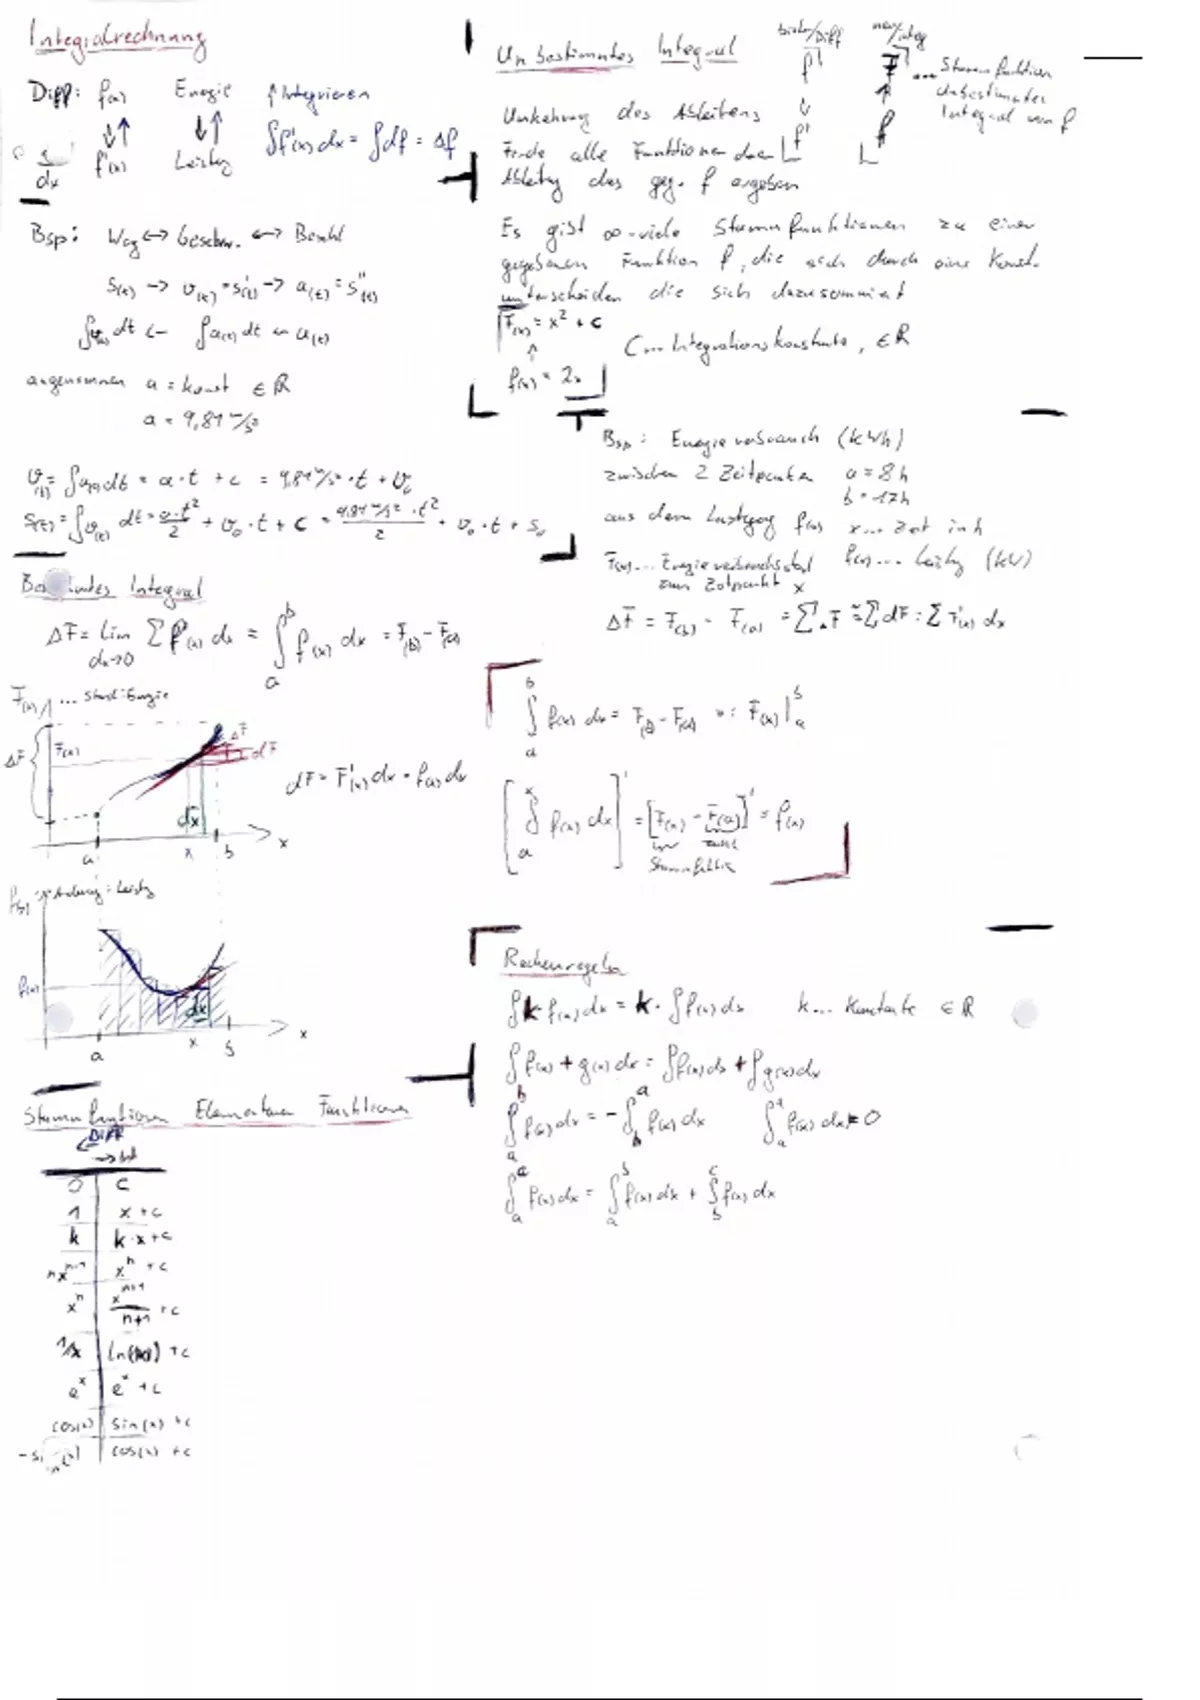 Integralrechnung
Diff: f(x) Energie ↑Integrieren
↓↑ ↓↑ ∫f'(x)dx = ∫df = Δf
dx f'(x) Leistung
Bsp: Weg <-> Geschw. <-> Beschl
s(t) -> v(t) = s'(t) -> a(t) = s''(t)
∫v(t) dt <- ∫a(t) dt <- a(t)
angenommen a = konst ∈ ℝ
a = 9,81 m/s²
v(t) = ∫a(t) dt = a·t + c = 9,81 m/s² · t + v₀
s(t) = ∫v(t) dt = a·t²/2 + v₀·t + c = 9,81 m/s² · t²/2 + v₀·t + s₀
Bestimmtes Integral
ΔF = lim dx->0 Σ f(x) dx = ∫ₐᵇ f(x) dx = F(b) - F(a)
F(x) ... Stand: Energie
ΔF F(x) ΔF dF
dF = F'(x) dx = f(x) dx
dx
a x b x
f(x) Änderung: Leistg
f(x)
dx
a x b x
Stammfunktionen Elementarer Funktionen
<- DIFF
-> Int
0 | c
1 | x + c
k | k·x + c
nxⁿ⁻¹ | xⁿ + c
xⁿ | xⁿ⁺¹/n+1 + c
1/x | ln(|x|) + c
eˣ | eˣ + c
cos(x) | sin(x) + c
-sin(x) | cos(x) + c
Unbestimmtes Integral bisher/Diff neu/integ
f F ... Stammfunktion
unbestimmtes
Integral von f
↓ ↑
f' f
Umkehrung des Ableitens
Finde alle Funktionen deren
Ableitung das geg. f ergeben
Es gibt ∞-viele Stammfunktionen zu einer
gegebenen Funktion f, die sich durch eine Konst.
unterscheiden die sich dazusummiert
F(x) = x² + c
↑
f(x) = 2x
C... Integrationskonstante, ∈ ℝ
Bsp: Energieverbrauch (kWh)
zwischen 2 Zeitpunkten a = 8h
b = 17h
aus dem Lastgang f(x) x... Zeit in h
F(x)... Energieverbrauchsstand f(x)... Leistg (kW)
zum Zeitpunkt x
ΔF = F(b) - F(a) = ΣΔF ≈ ΣdF = ΣF'(x) dx
∫ₐᵇ f(x) dx = F(b) - F(a) =: F(x)|ₐᵇ
[∫ₐˣ f(x) dx]' = [F(x) - F(a)]' = f(x)
Stammfunktion
Rechenregeln
∫k·f(x) dx = k·∫f(x) dx k... Konstante ∈ ℝ
∫f(x) + g(x) dx = ∫f(x) dx + ∫g(x) dx
∫ₐᵇ f(x) dx = -∫ᵇₐ f(x) dx ∫ₐᵃ f(x) dx = 0
∫ₐ f(x) dx = ∫ₐᵇ f(x) dx + ∫ᵇᶜ f(x) dx